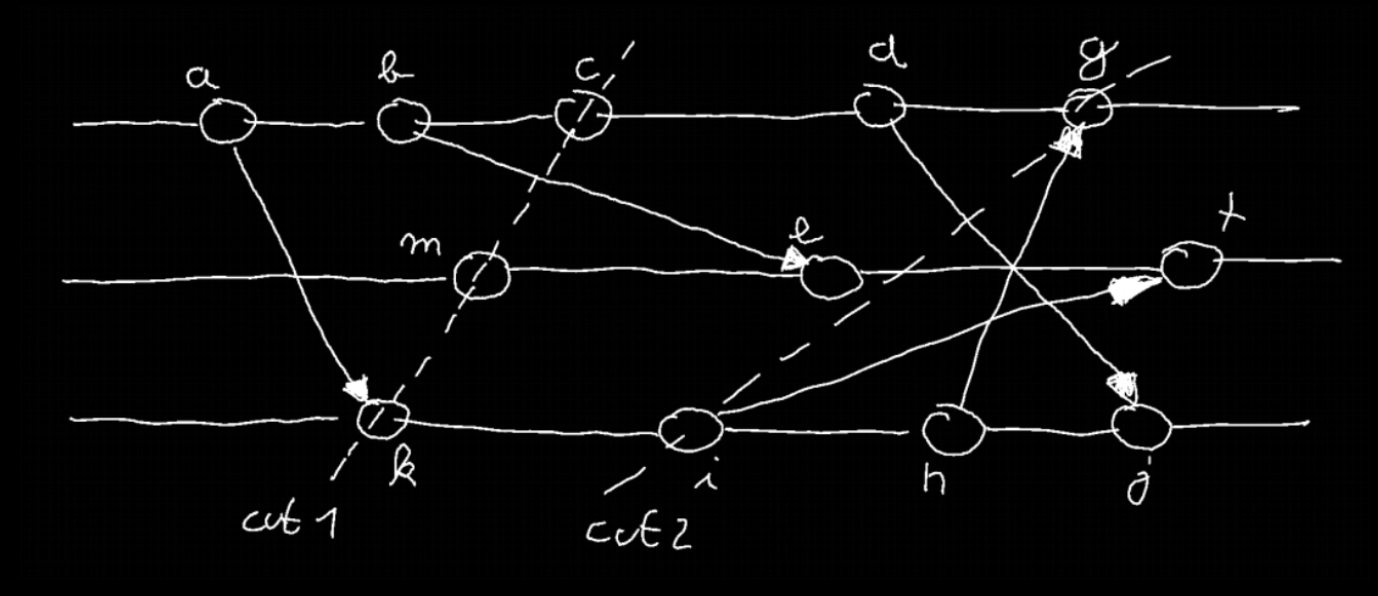 a b c d g
m e f
k i h j
cut 1 cut 2